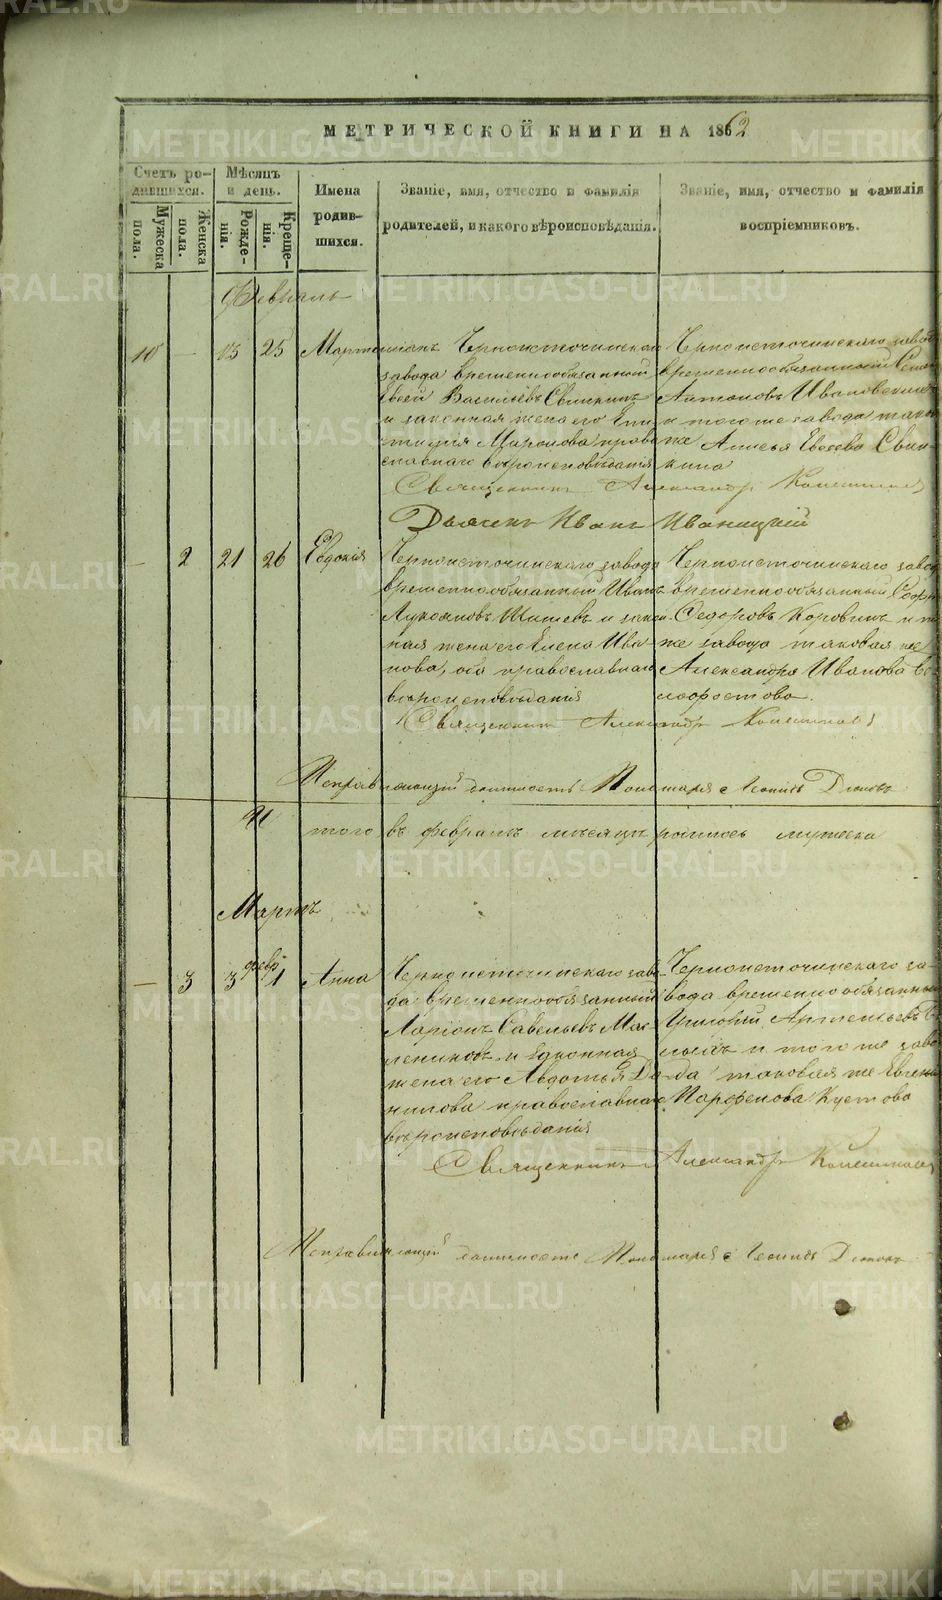 МЕТРИЧЕСКОЙ КНИГИ НА 1862
Счетъ родившихся.
Мѣсяцъ и день.
Имена родившихся.
Званіе, имя, отчество и фамилія родителей, и какого вѣроисповѣданія.
Званіе, имя, отчество и фамилія воспріемниковъ.
Мужеска пола.
Женска пола.
Рожденія.
Крещенія.
Февраль
10 — 13 25 Мартиніанъ
Черноисточинскаго
завода временнообязанный
Евсей Васильевъ Свинкинъ
и законная жена его Епи
Миронова право
славнаго вѣроисповѣданія
Черноисточинскаго завод
временнообязанный
Антоновъ Ивановскихъ
и того же завода
Алисья Евсеева Свин
кина
Священникъ Александръ
Дьячекъ Иванъ Иваницкій
— 2 21 26 Евдокія
Черноисточинскаго завода
временнообязанный Иванъ
Лукояновъ и закон
ная жена его Елена Ива
нова, оба православнаго
вѣроисповѣданія
Черноисточинскаго завод
временнообязанный
Федоровъ Коровинъ и т
же завода таковая же
Александра Иванова Бѣ
лофостова.
Священникъ Александръ
Исправляющій должность Пономаря Леонидъ
Итого въ февралѣ мѣсяцѣ родилось мужеска
Мартъ
— 3 3 февр 1 Анна
Черноисточинскаго заво
да временнообязанный
Ларіонъ Савельевъ Мас
лениковъ и законная
жена его Авдотья Да
нилова православнаго
вѣроисповѣданія
Черноисточинскаго за-
вода временнообязанный
Григорій Артемьевъ Б
и того же заво
да таковая же Евгенія
Парфенова Кустова
Священникъ Александръ
Исправляющій должность Пономаря Леонидъ
METRIKI.GASO-URAL.RU